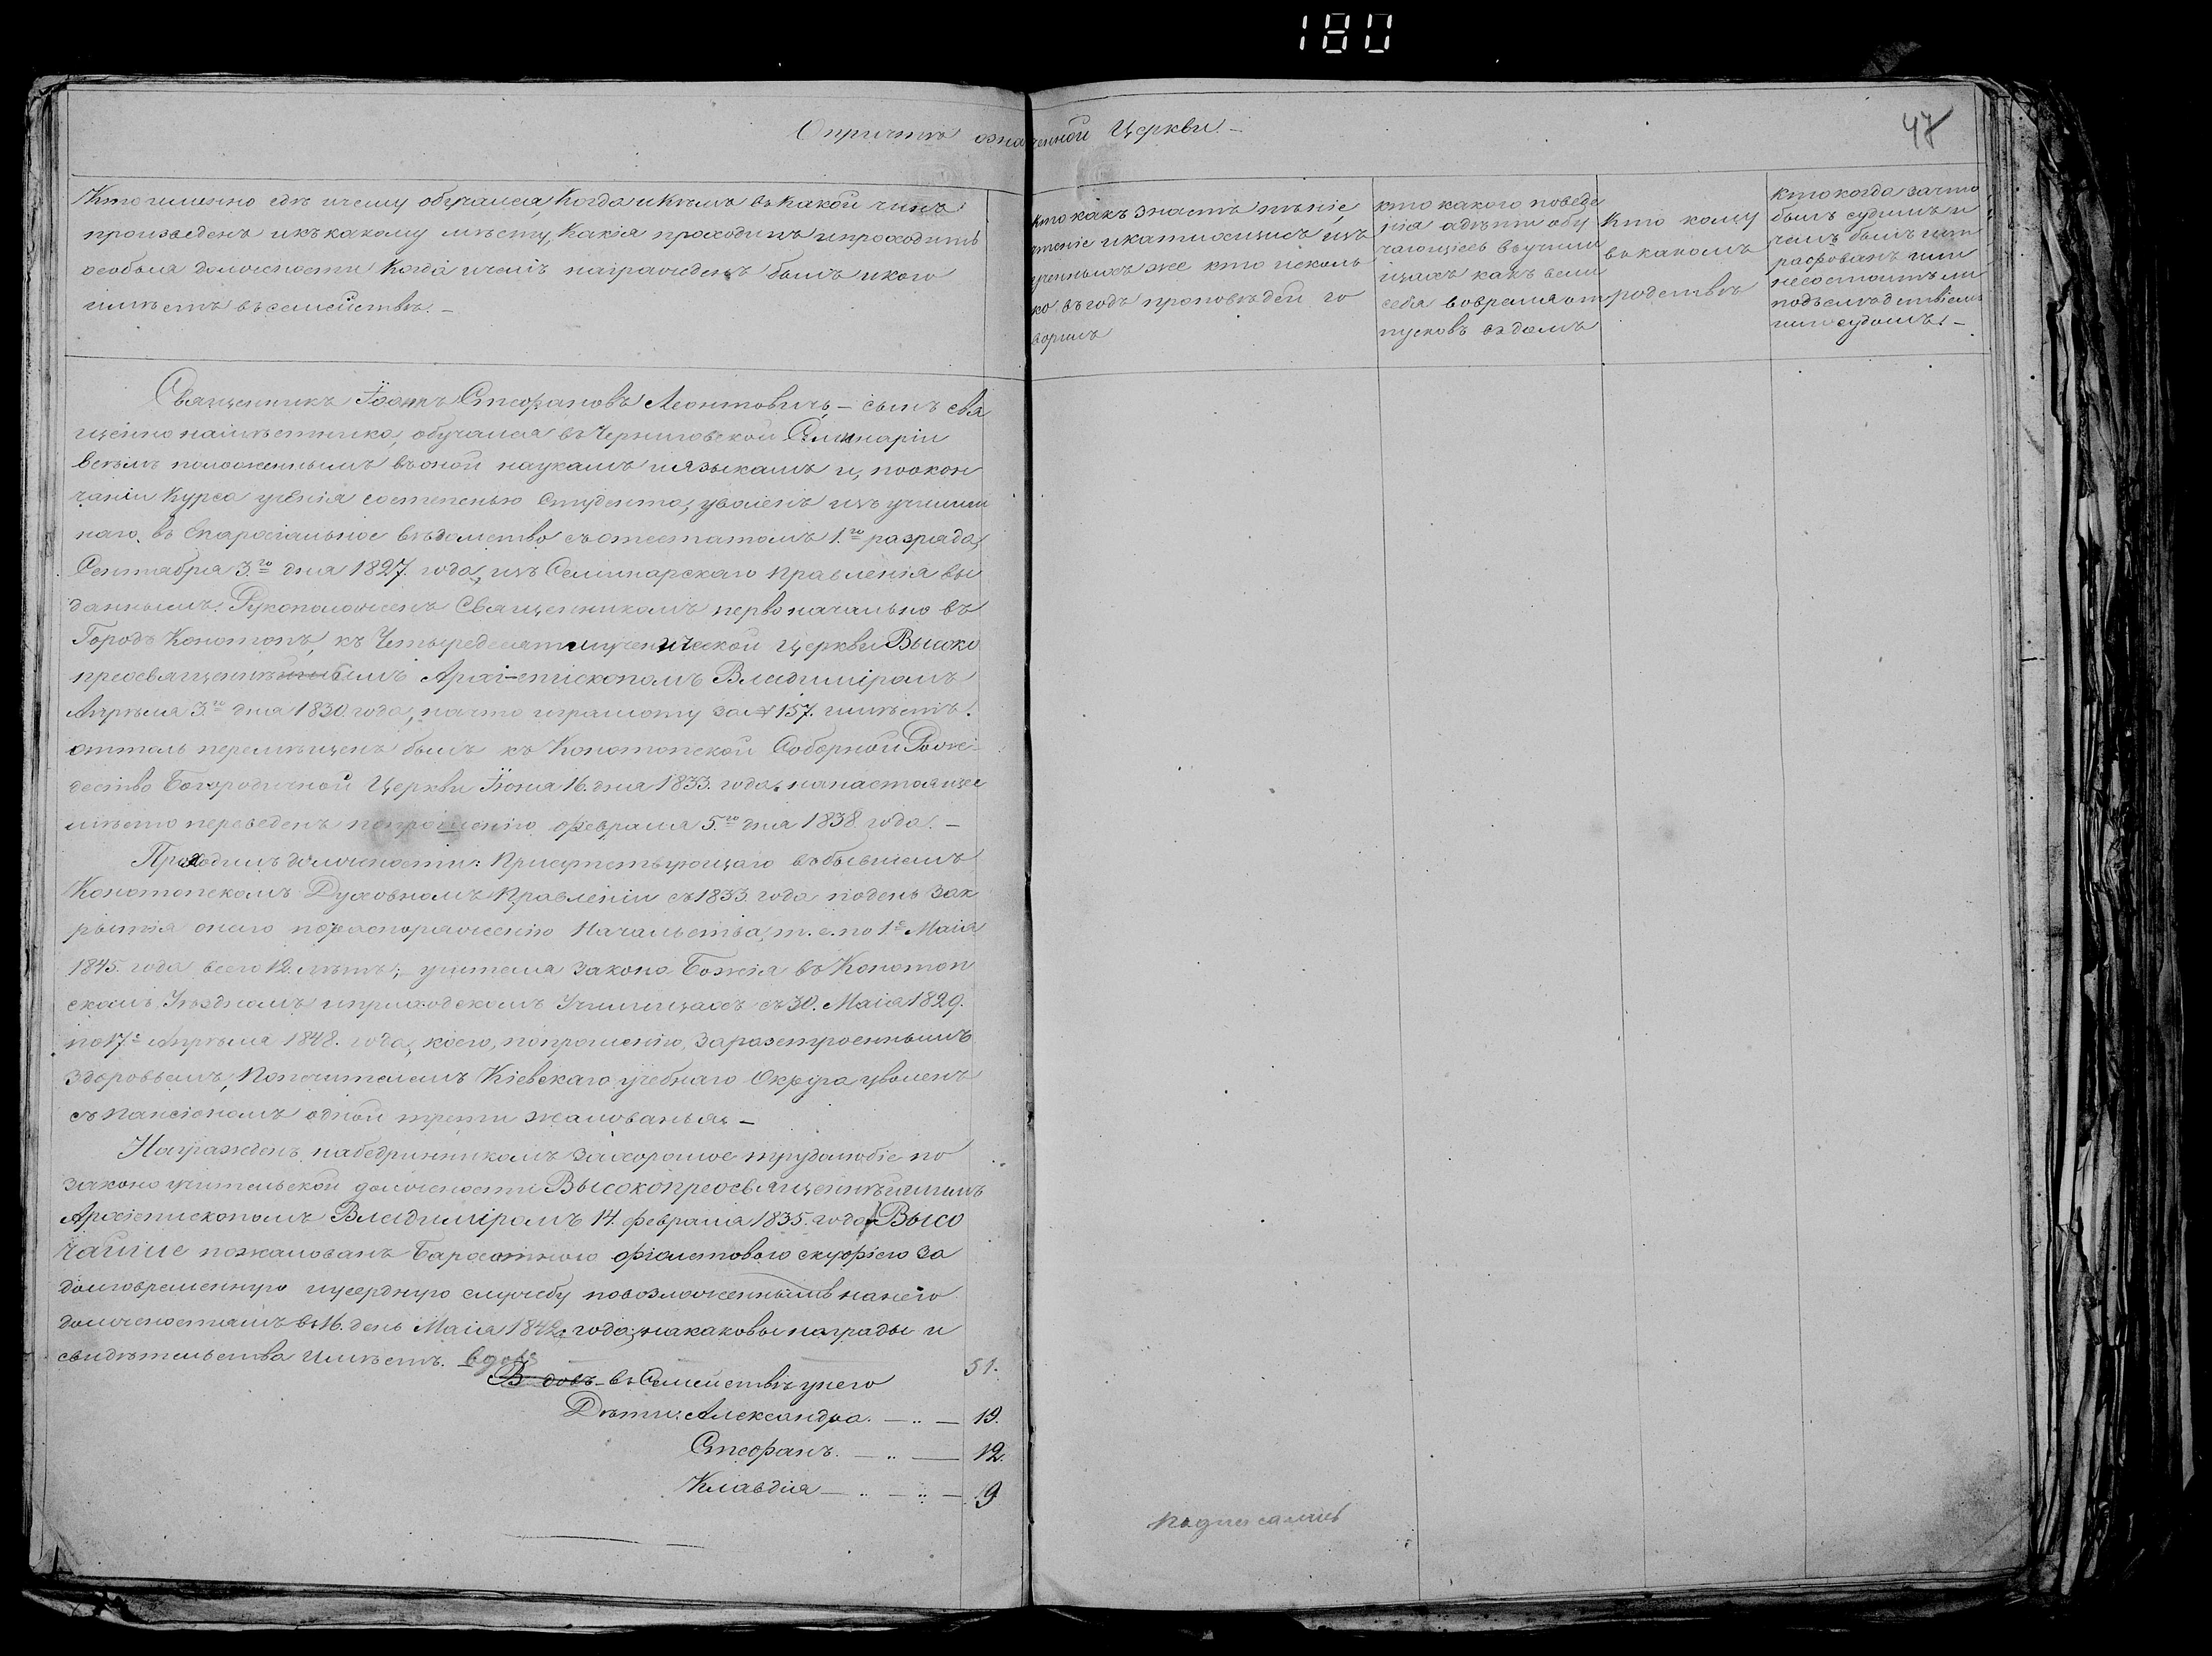 180
47
О причтѣ означенной Церкви. –
Кто именно гдѣ и чему обучался, когда и кѣмъ въ какой чинъ
произведенъ и къ какому мѣсту, какія проходилъ и проходитъ
особыя должности когда и чемъ награжденъ былъ и кого
имѣетъ въ семействѣ. –
Кто какъ знаетъ пѣніе,
чтеніе и катихизисъ изъ
ученыхъ же кто несколь
ко въ годъ проповѣдей го
ворилъ
Кто какого поведе
нія а дѣти обу
чающіесь въ учили
щахъ какъ вели
себя во время от
пусковъ въ домъ
Кто кому
въ какомъ
родствѣ
Кто когда за что
былъ судимъ и
чемъ былъ шт
рафованъ или
несостоитъ ли
подъ слѣдствіемъ
или судомъ. –
Священникъ Іоаннъ Стефановъ Леонтовичь, – сынъ свя
щеннонамѣстника, обучался въ Черниговской Семинаріи
всемъ положеннымъ въ оной наукамъ и языкамъ и, по окон
чаніи курса ученія состепенью Студента, уволенъ изъ училищ
наго въ Епархіальное вѣдомство съ атестатомъ 1.го разряда,
Сентября 3.го дня 1827. года, изъ Семинарскаго Правленія вы
даннымъ. Рукоположенъ Священникомъ первоначально въ
Городъ Конотопъ, къ Четыредесятмученической Церкви Высоко
преосвященнѣ Архі-епископомъ Владиміромъ
Апрѣля 3.го дня 1830. года, на что и грамоту за № 157. имѣетъ.
оттоль перемѣщенъ былъ къ Конотопской Соборной Рож-
дество Богородичной Церкви Іюня 16. дня 1833. года, на настоящее
мѣсто переведенъ попрошенію февраля 5.го дня 1838 года. –
Проходилъ должности: Присутствующаго въ бывшемъ
Конотопскомъ Духовномъ Правленіи съ 1833. года подень зак
рытія онаго порас­поряженію Начальства, т. е. по 1.е Маія
1845. года всего 12. лѣтъ; – учителя закона Божія въ Конотоп
скомъ Уѣздномъ и приходскомъ Училищахъ съ 30. Маія 1829.
по 17.е Апрѣля 1848. года, коего, попрошенію, за разстроеннымъ
здоровьемъ, Попечителемъ Кіевскаго учебнаго Округа уволенъ
съ пансіономъ одной трети жалованья. –
Награжденъ набедринникомъ за хорошое трудолюбіе по
законоучительской должности Высокопреосвященнѣйшимъ
Архіепископомъ Владиміромъ 14. февраля 1835. года, Высо
чайше пожалованъ Бархатною фіолетовою скуфіею за
долговременную и усердную службу по возложеннымъ на него
должностямъ въ 16. день Маія 1842. года; на каковы награды и
свидѣтельства имѣетъ. вдовъ 51.
В довъ – въ Семействѣ у него
Дѣти: Александра. – .. – 19.
Стефанъ. – .. – 12.
Клавдія – .. – .. – 9
подписались